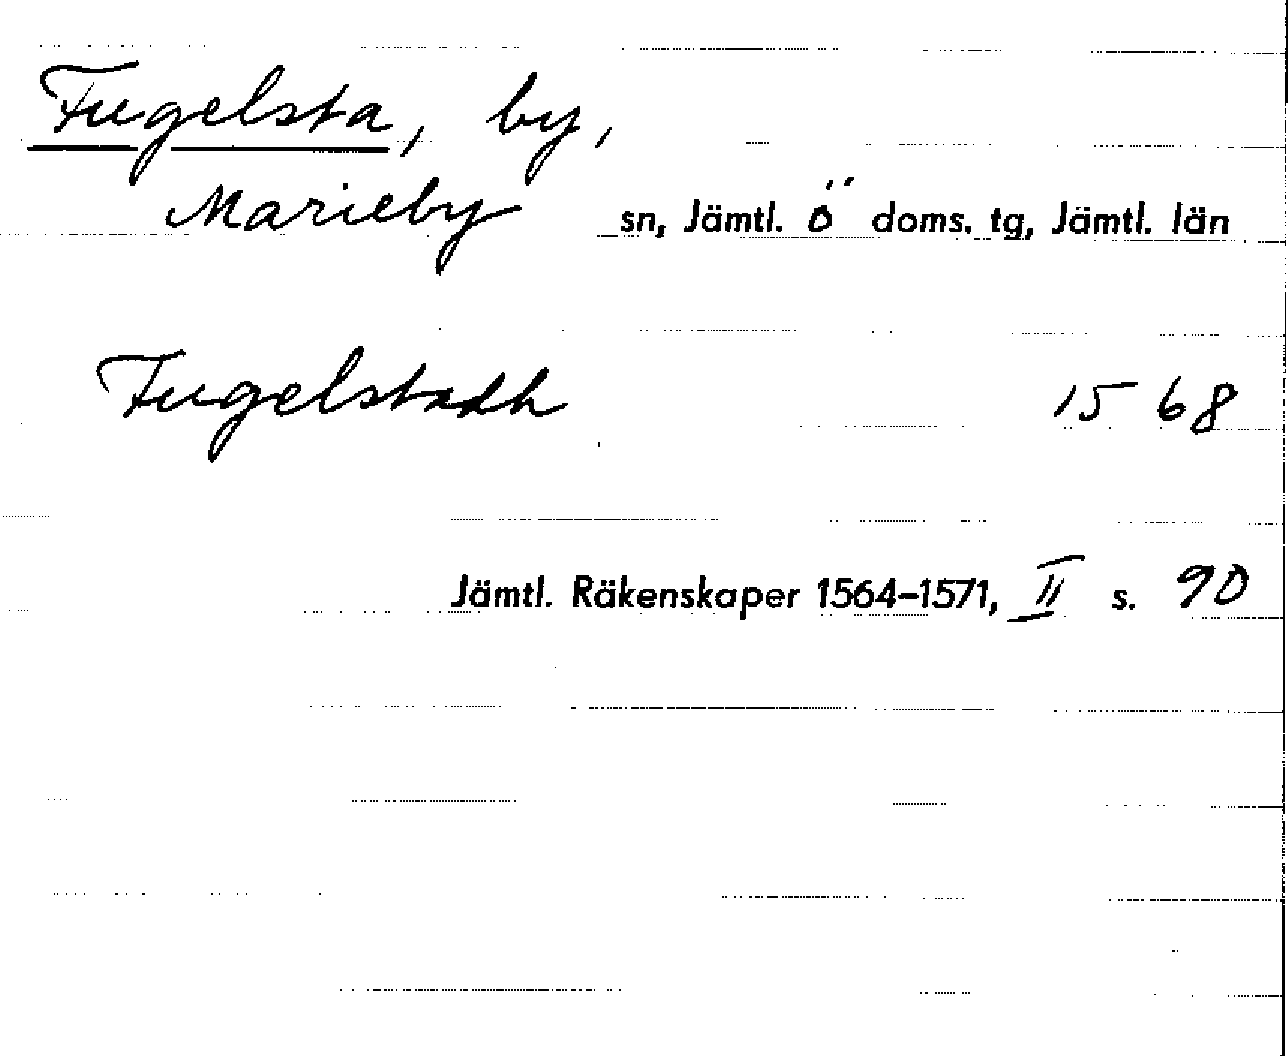 Fugelsta, by,
Marieby sn, Jämtl. ö doms. tg, Jämtl. län
Fugelstadh 1568
Jämtl. Räkenskaper 1564–1571, II s. 90